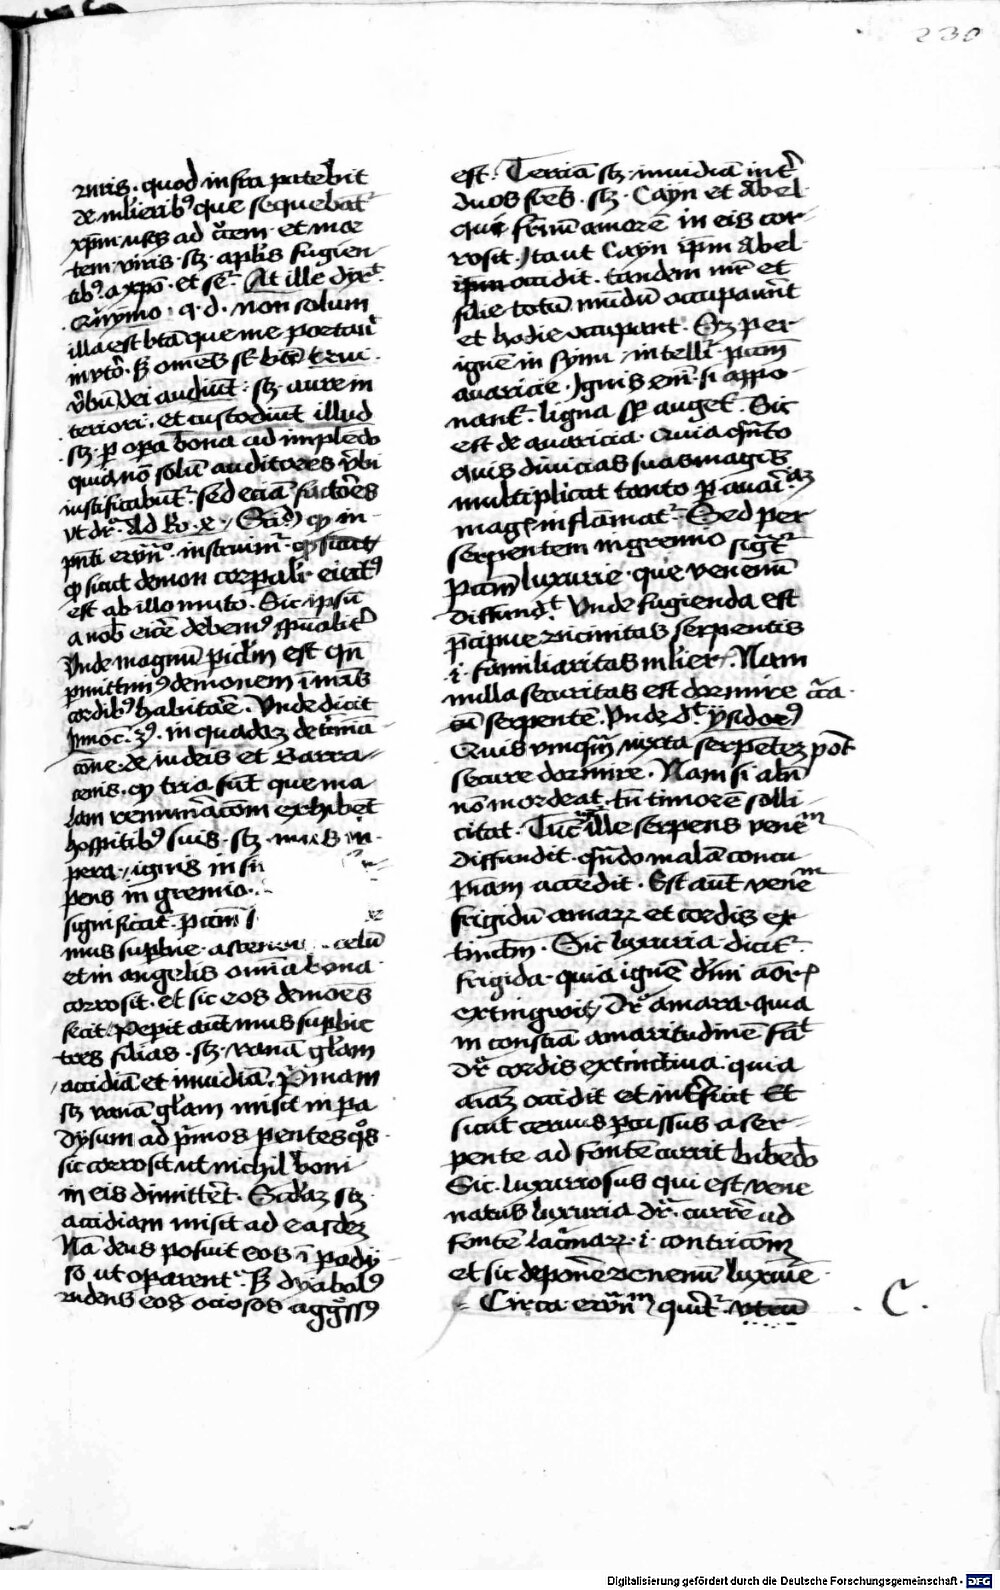 230
uiris · quod infra patebit
de mlierib9 que sequebāt᷑
xpm usq ad c᷑cem · et mor
tem · viris · scz · aplis fugien
tib9 a xpo · et sc᷑ · At ille dixt
· q · d · non solum
illa est bta que me portaū
in vto · sꝫ omēs st bti qui
v̄bū dei audiūt · scz · aure in
teriori · et custodiūt illud
· scz · ꝑ oꝑa bona ad implēdo
quia nō solū auditores v̄bi
iustificabūt᷑ · sed eciā factōres
vt dr᷑ · Ad Ro · Scdo ꝙ in
pnti · instruim᷑ · ꝙ sicut
ꝙ sicut demon corpalr eiect9
est ab illo muto · Sic ipsū
a nob eicē debem9 spūalit᷑
Vnde magnū piclm est qn̄
pmittim9 demonem ī nris
cordib9 habitare · Vnde dicit
Innoc · in quadaz det᷑mina
cōne · de iudeis et Sarra
cenis · ꝙ tria sūt que ma
lam remunācom exhibēt
hospitib9 suis · scz · mus in
pera · ignis in si
pens in gremio ·
significat᷑ · pctm
mus supbie · celū
et in angelis omīa bona
corrosit · et sic eos demoēs
fecit · Pepit aūt mus supbie
tres filias · scz · vanā glam
accidiā et inuidiā · P̄mam
scz vanā glam misit in pa
dysum ad p̄mos pentes q̄s
sic corrosit ut nichil boni
in eis dimittēt · Scdaz scz
accidiam misit ad easdez
Nā deus posuit eos ī pady
so ut oꝑarent᷑ · Sꝫ dyabol9
uidens eos ociosos aggss9
est · Terciā scz inuidiā int᷑
duos frēs · scz · Cayn et Abel
que frnū amorē in eis cor
rosit · Ita ut Cayn ipm Abel
ipm occidit · tandem mr et
filie totū mūdū occupauerūt
et hodie occupant · Sꝫ per
ignem in synu intelli᷑ pctm
auaricie · Ignis em̄ · si appo
nant᷑ · ligna sp auget᷑ · Sic
est de auaricia · Quia qnto
quis diuicias suas magis
multiplicat tanto ꝑ auariaz
mag9 inflāmat᷑ · Sed per
serpentem in gremio sigt᷑
Pctm luxurie · que venenū
diffundit · Vnde fugienda est
p̄cipue vicinitas serpentis
· i · familiaritas mlier · Nam
nulla securitas est dormire c᷑ca
cū serpente · Vnde dt ysidor9
Quis vnqm iuxta serpētez pōt
secure dormire · Nam si aliū
nō mordeat tn timorē solli
citat · Tūc ille serpens venēm
diffundit · qn̄do malā concu
piam accedit · Est aūt venēm
frigidū amarꝝ et cordis ex
tinctm · Sic luxuria dicit᷑
frigida quia ignē dīni aorꝭ
extingwit · Dr᷑ amara · quia
in consciā amaritudinē fact
Dr᷑ cordis extinctiua · quia
aiaz occidit et int᷑ficit Et
sicut ceruus pcussus a ser
pente ad fontē currit bibēdo
Sic · luxuriosus qui est vene
natus luxuria dr᷑ · currē ad
fontē lac᷑marꝝ · i · contricōm
et sic deponē venenū luxurie
Circa quit᷑ · vtrū · C ·
Digitalisierung gefördert durch die Deutsche Forschungsgemeinschaft - DFG